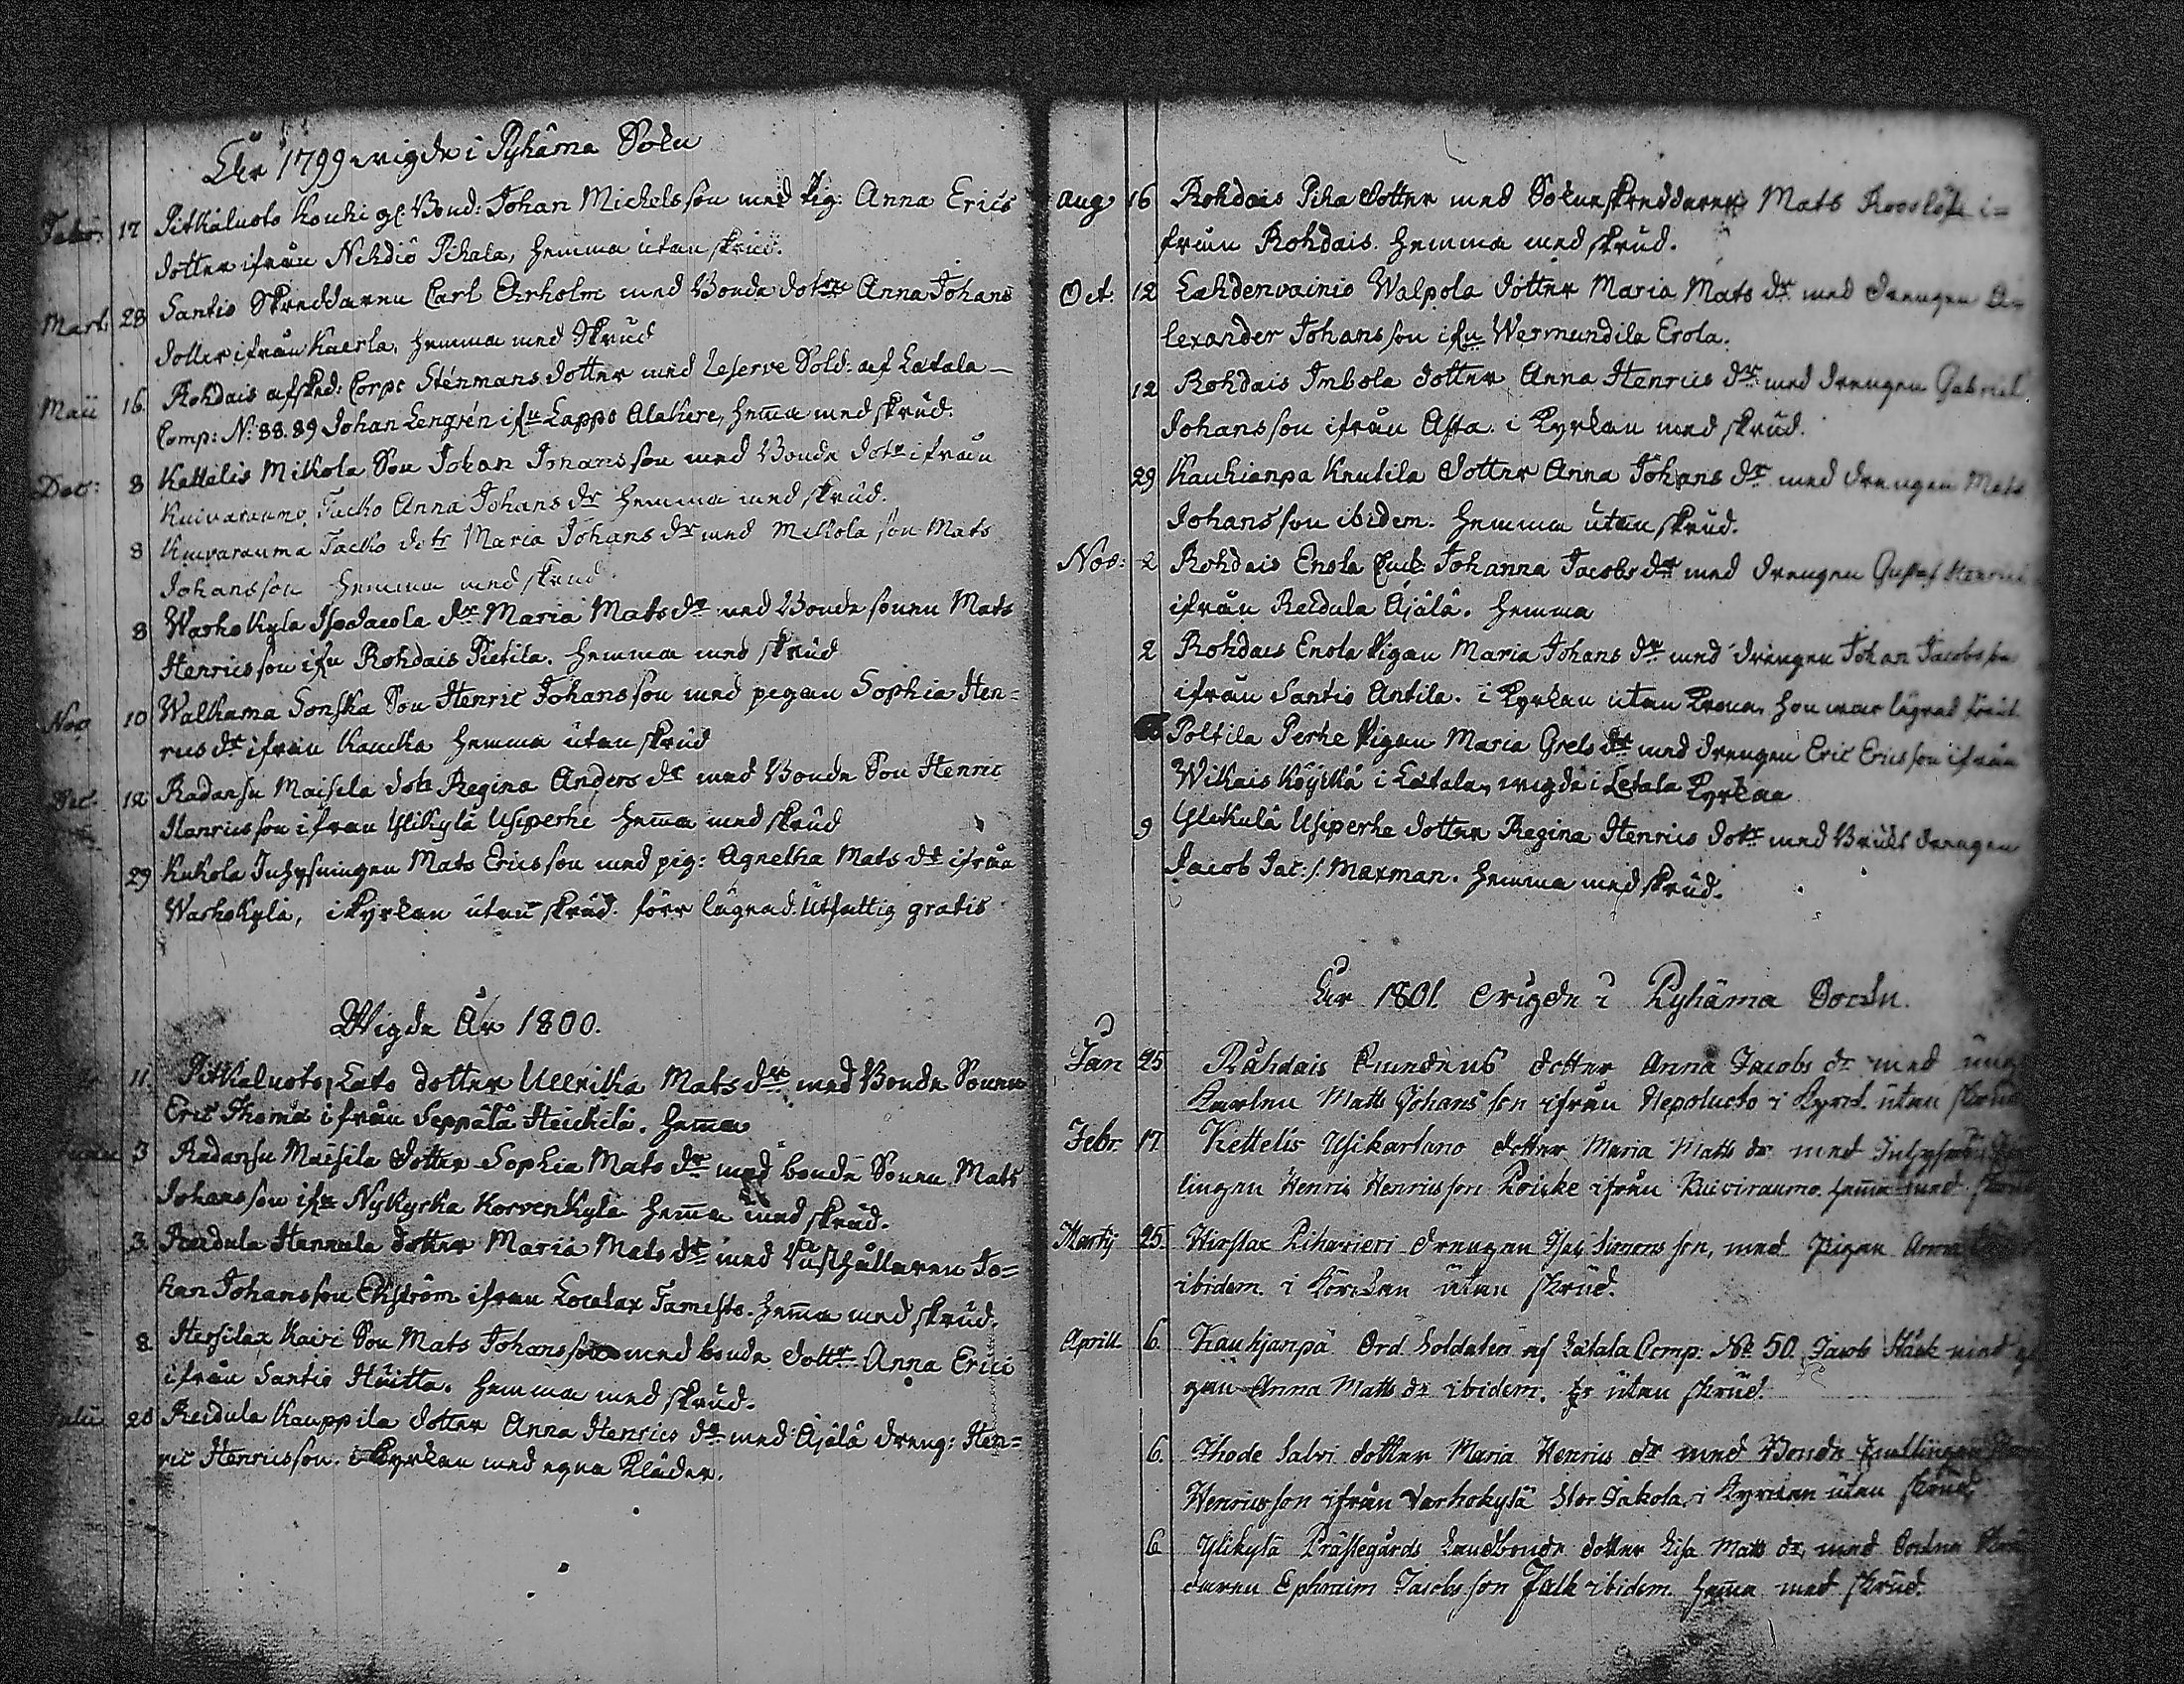 År 1799 wigde i Pyhäma Sokn
Febr: 17 Pitkäluoto Kouki gl: Bond: Johan Michelsson med Pig: Anna Erics
dotter ifrån Nihdiö Pihala, hemma utan skrud.
Mart: 28 Santio Skreddaren Carl Ehrholm med Bonde dottren Anna Johans
dotter ifrån Kaerla, hemma med skrud
Maii 16. Rohdais afsked: Corpr Sténmans dotter med Reserve Sold: af Letala
Comp: No: 88.89 Johan Lengrén ifn Lappo Alakere, hema med skrud.
Dec: 8 Kettelis Mikola Son Johan Johansson med Bonde dotr ifrån
Kuivaraumo, Tacko Anna Johans dr hemma med skrud.
8 Kuivarauma Tacko dotr Maria Johans dr med Mikola son Mats
Johansson hemma med skrud
8 Warhokyla Isodacola dr Maria Mats dr med Bonde sonen Mats
Henricsson ifn Rohdais Pietila. hemma med skrud
Nov 10 Walkama Sonska Son Henric Johansson med pigan Sophia Hen=
rics dr ifrån Kaucka hemma utan skrud
12 Radansu Maisela dotr Regina Anders dr med Bonde Son Henric
Henricsson ifrån Ylikylä Usiperhe hema med skrud
29 Kukola Inhysningen Mats Ericsson med pig: Agnetha Mats dr ifrån
Warhokylä, i kyrkan utan skrud. förr lägrad. Utfattig gratis
Wigde År 1800.
11. Pitkäluoto, Lato dotter Ullrika Mats dr med Bonde Sonen
Eric Thoma ifrån Seppälä Heickilä. hema
3 Radansu Maisila dotter Sophia Mats dr med bonde Sonen Mats
Johansson ifn Nykyrka Korvenkylä hema med skrud.
3. Reidula Hannula dotter Maria Mats dr med Rusthållaren Jo=
han Johansson Ekström ifrån Localax Tamesto. hema med skrud.
8 Hersilax Kairi Son Mats Johansson med bonde dottr Anna Erics
ifrån Santio Huitto. hemma med skrud.
28 Reidula Kauppila dotter Anna Henrics dr med Äjälä dreng: Hen=
ric Henricsson. i Kyrkan med egna Kläder.
Aug 16 Rohdais Piha dotter med Sokneskreddaren Mats i=
från Rohdais. hemma med skrud.
Oct: 12 Lahdenvainio Walpola dotter Maria Mats dr med drengen A=
lexander Johansson ifn Wermundila Erola.
12 Rohdais Imbola dotter Anna Henrics dr med drengen Gabriel
Johansson ifrån Asta. i Kyrkan med skrud.
29 Kauhianpä Knutila dotter Anna Johans dr med drengen Mats
Johansson ibidem. hemma utan skrud.
Nov: 2 Rohdais Enola Johanna Jacobs dr med drengen Gustaf Henrics
ifrån Reidula Äjälä. hemma
2 Rohdais Enola Pigan Maria Johans dr med drengen Johan Jacobsson
ifrån Santio Antila. i Kyrkan utan Krona, hon war lägrad förut.
Poltila Perhe Pigan Maria Grels dr med drengen Eric Ericsson ifrån
Wikais Köylkä i Letala, wigde i Letala Kyrkaa
9 Ylikylä Usiperhe dotter Regina Henrics dotr med Bruks drengen
Jacob Jac: s. Maxman. hemma med skrud.
År 1801. wigde i Pyhäma Sockn.
Jan 25 Råhdais dotter Anna Jacobs dr med
Karlen Matts Johansson ifrån Nepoluoto i Kyrck. utan skrud
Febr. 17. Kettelis Usikartano dotter Maria Matts dr med
lingen Henric Henricsson Roicke ifrån Kuiviraumo. hema med skrud
Martij 25 Hirslax Pihavieri drengen Isac Simonsson, med Pigan Anna
ibidem. i Körckan utan skrud.
Aprill 6. Kauhjanpä Ord Soldaten af Låtala Comp: No 50. Jacob Stårk med
gan Anna Matts dr ibidem. utan skrud.
6. Ihode Salvi dotter Maria Henrics dr med Bonde
Henricsson ifrån Varhokylä Stor Jakola, i Kyrckan utan skrud
6 Ylikylä Prästegårds Landbonde dotter Lisa Matts dr, med Sockne
daren Ephraim Jacobsson Falk ibidem. hema med skrud.